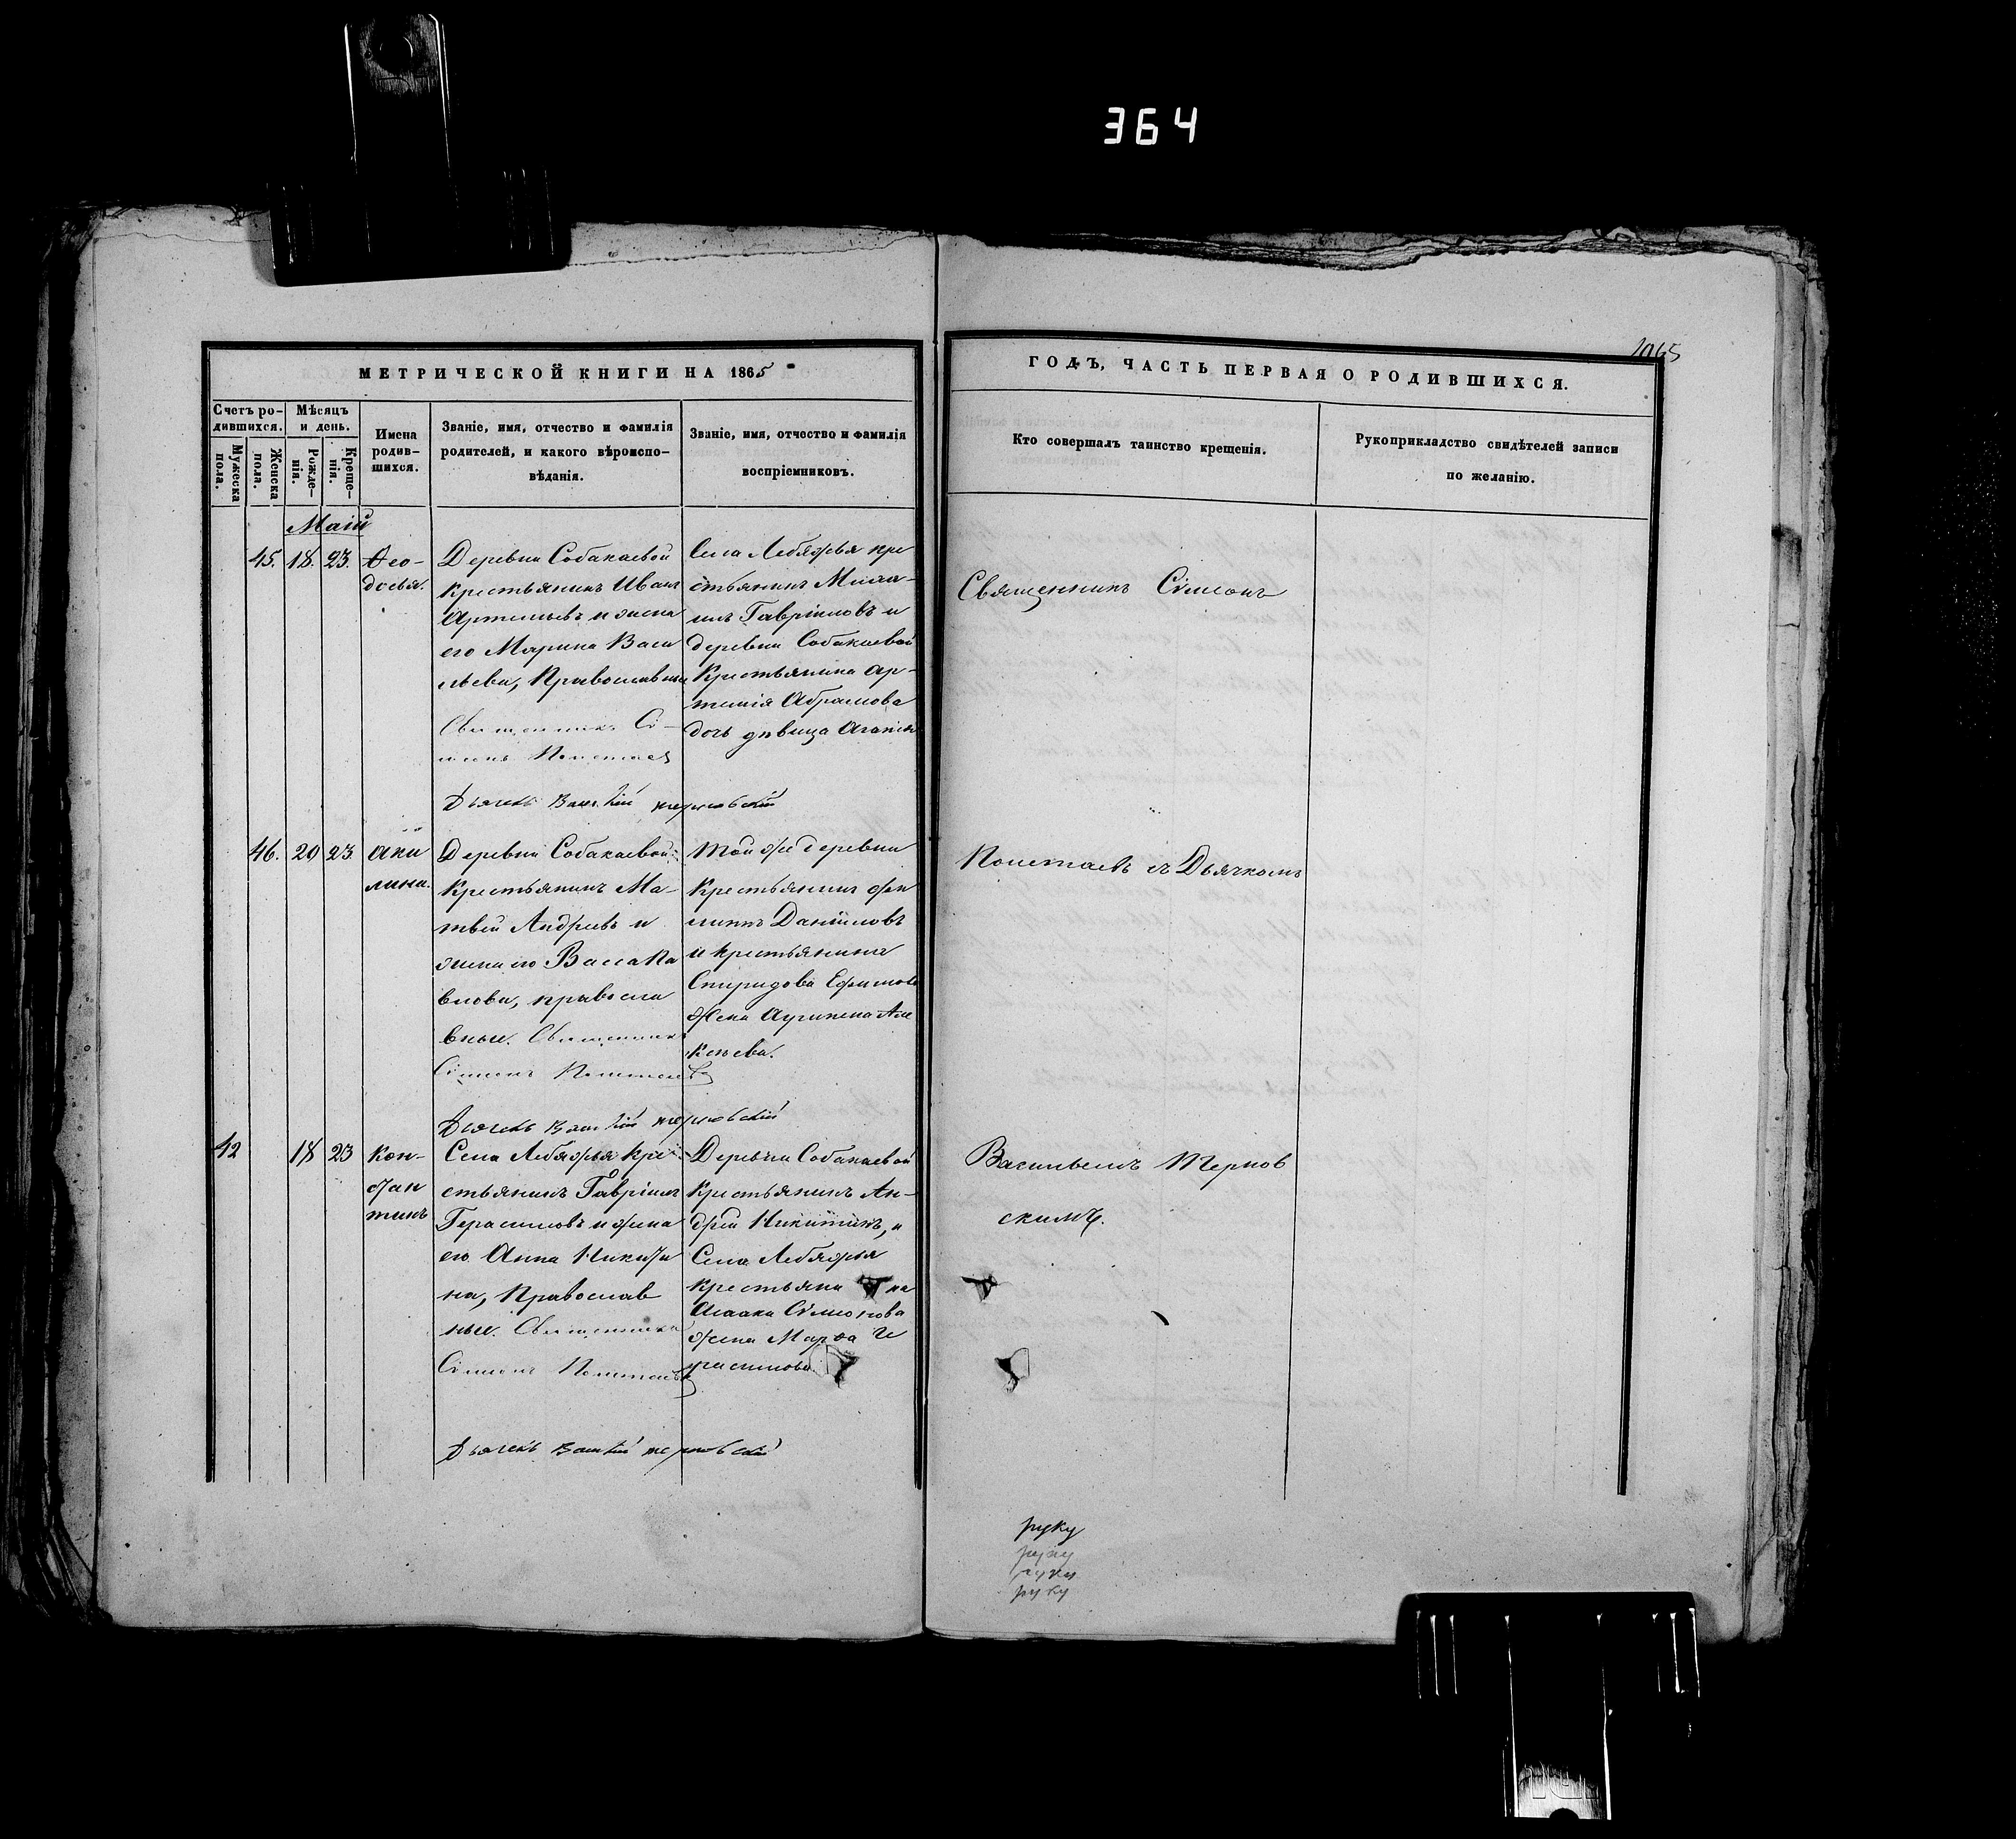 364
1065
МЕТРИЧЕСКОЙ КНИГИ НА 1865
ГОДЪ, ЧАСТЬ ПЕРВАЯ О РОДИВШИХСЯ.
Счетъ ро-
дившихся.
Мужеска
пола.
Женска
пола.
Мѣсяцъ
и день.
Рожде-
нія.
Креще-
нія.
Имена
родив-
шихся.
Званіе, имя, отчество и фамилія
родителей, и какого вѣроиспо-
вѣданія.
Званіе, имя, отчество и фамилія
воспріемниковъ.
Кто совершалъ таинство крещенія.
Рукоприкладство свидѣтелей записи
по желанію.
Маій
45. 18. 23.
Ѳео-
досья.
Деревни Собакаевой
крестьянинъ Иванъ
Артемьевъ и жена
его Марина Васи
льева, Православные
Священникъ Сі-
меонъ Полетаевъ
Дьячекъ Василій Терновскій
Села Лебяжья кре
стьянинъ Миха-
илъ Гавріиловъ и
деревни Собакаевой
Крестьянина Ар-
темія Абрамова
дочь дѣвица Агапія
Священникъ Сімеонъ
46. 20 23
Аки
лина.
Деревни Собакаевой
Крестьянинъ Ма-
твей Андреевъ и
жена его Васса Па
влова, правосла
вные. Священникъ
Сімеонъ Полетаевъ
Дьячекъ Василій Терновскій
Той же деревни
Крестьянинъ Фи
липпъ Даніиловъ
и крестьянина
Спиридова Ефимова
жена Агрипена Але
ксѣева.
Полетаевъ съ Дьячкомъ
42 18 23
Кон-
стан
тинъ
Села Лебяжья Кре-
стьянинъ Гавріилъ
Герасимовъ и жена
его Анна Никити
на, Православ
ные. Священникъ
Сімеонъ Полетаевъ
Дьячекъ Василій Терновскій
Деревни Собакаевой
Крестьянинъ Ан-
дрей Никитинъ, и
Села Лебяжья
крестьяни на
Исаака Сімеонова
жена Марѳа Ге
расимова.
Васильемъ Тернов
скимъ.
руку
руку
руку
руку